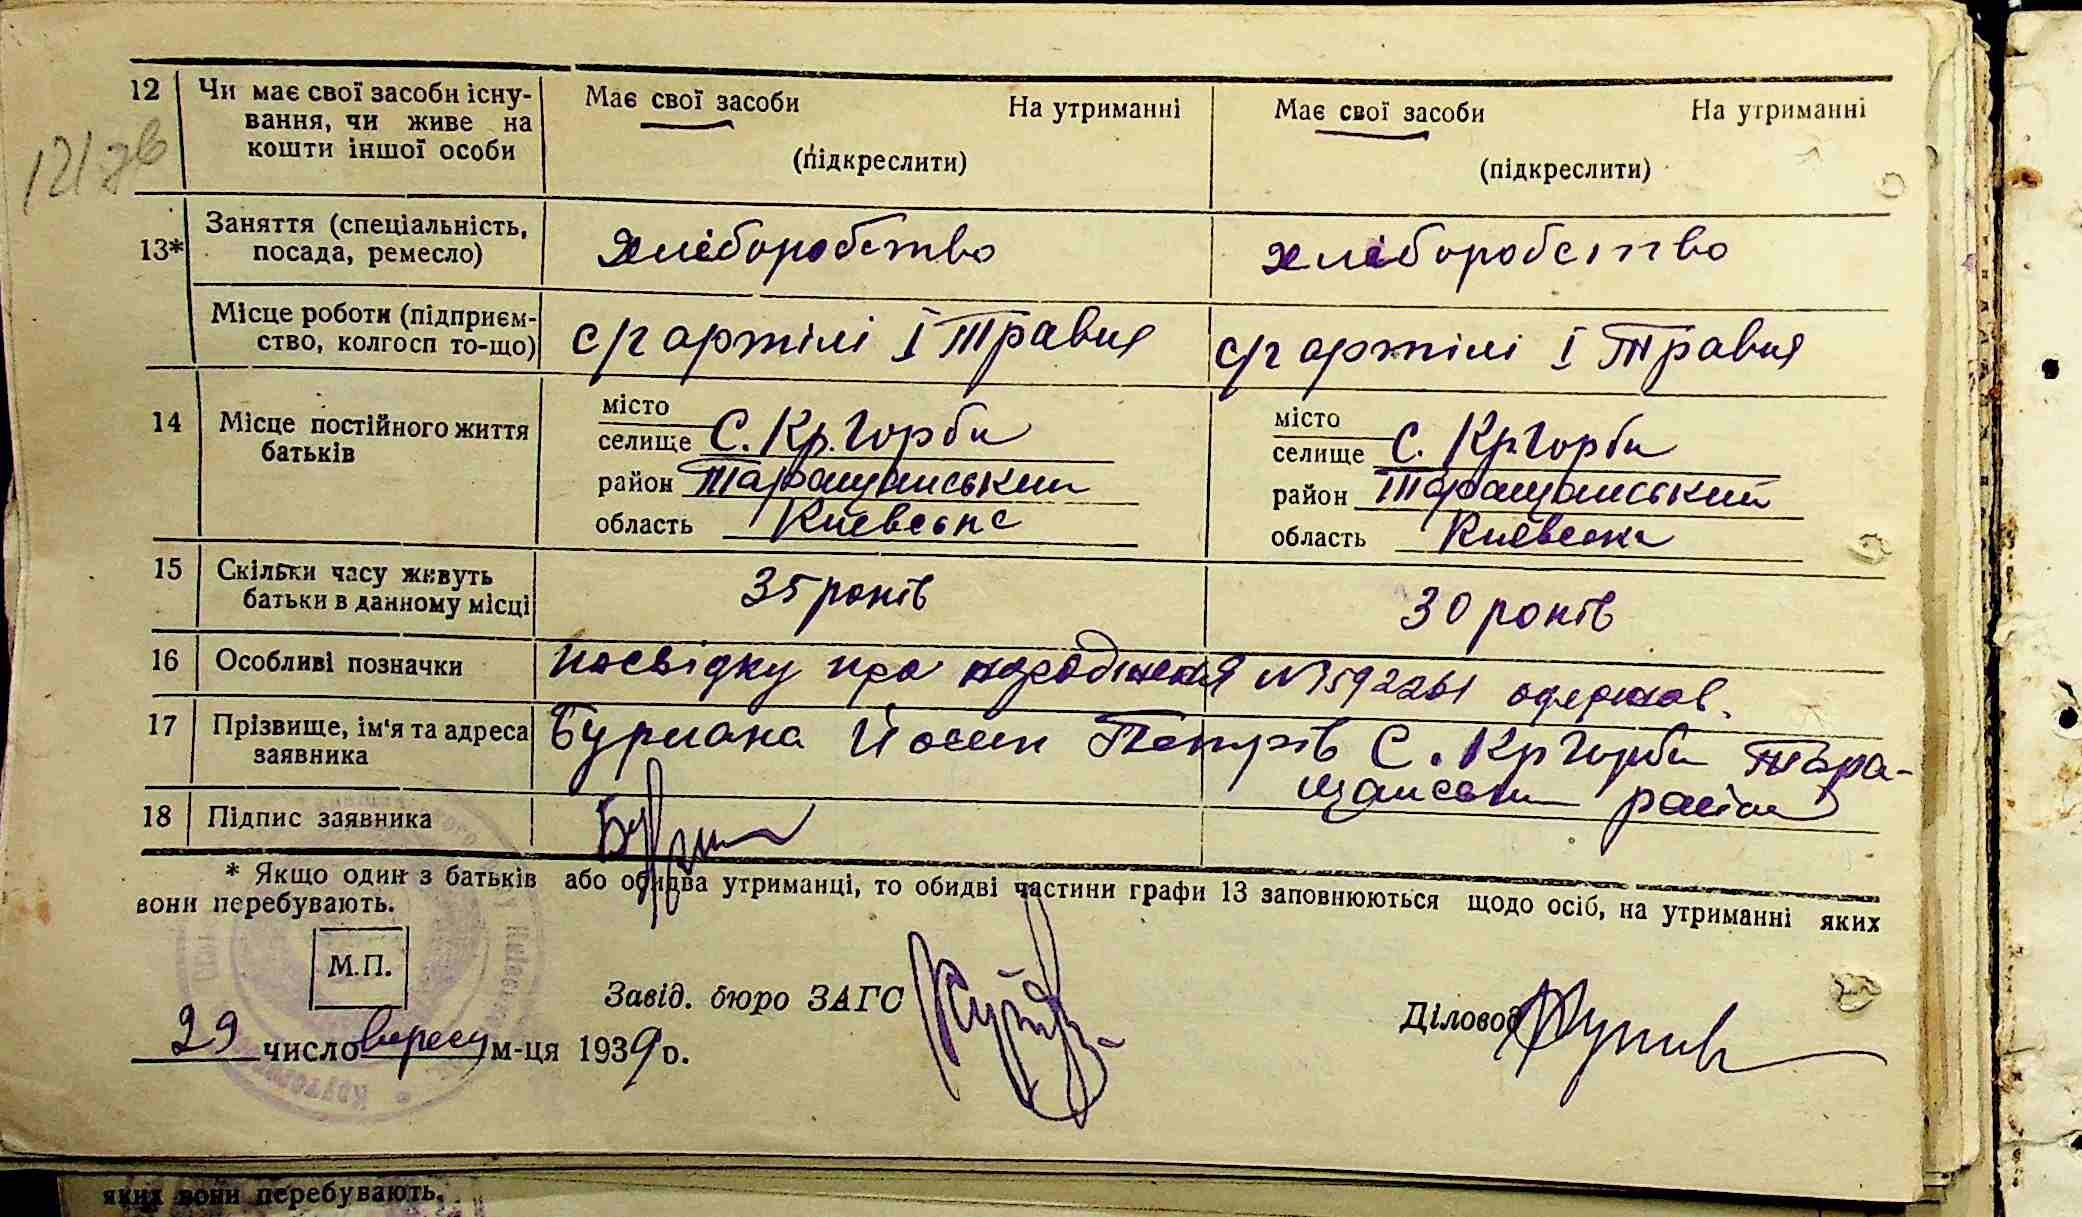 12 Чи має свої засоби існу-
вання, чи живе на
кошти іншої особи
Має свої засоби На утриманні
(підкреслити)
Має свої засоби На утриманні
(підкреслити)
13* Заняття (спеціальність,
посада, ремесло)
хліборобство
хліборобство
Місце роботи (підприєм-
ство, колгосп то-що)
с/г артілі І Травня
с/г артілі І Травня
14 Місце постійного життя
батьків
місто
селище С. Кр. Горби
район Таращанський
область Киевська
місто
селище С. Кр Горби
район Таращанський
область Киевська
15 Скільки часу живуть
батьки в данному місці
35 років
30 років
16 Особливі позначки
посвідку про народження № 592261 одержав.
17 Прізвище, ім'я та адреса
заявника
С. Кр Горби Тара-
щанськ район
18 Підпис заявника
* Якщо один з батьків або обидва утриманці, то обидві частини графи 13 заповнюються щодо осіб, на утриманні яких
вони перебувають.
М.П.
Завід. бюро ЗАГС
Діловод
29 число вересня м-ця 1939 р.
яких вони перебувають.